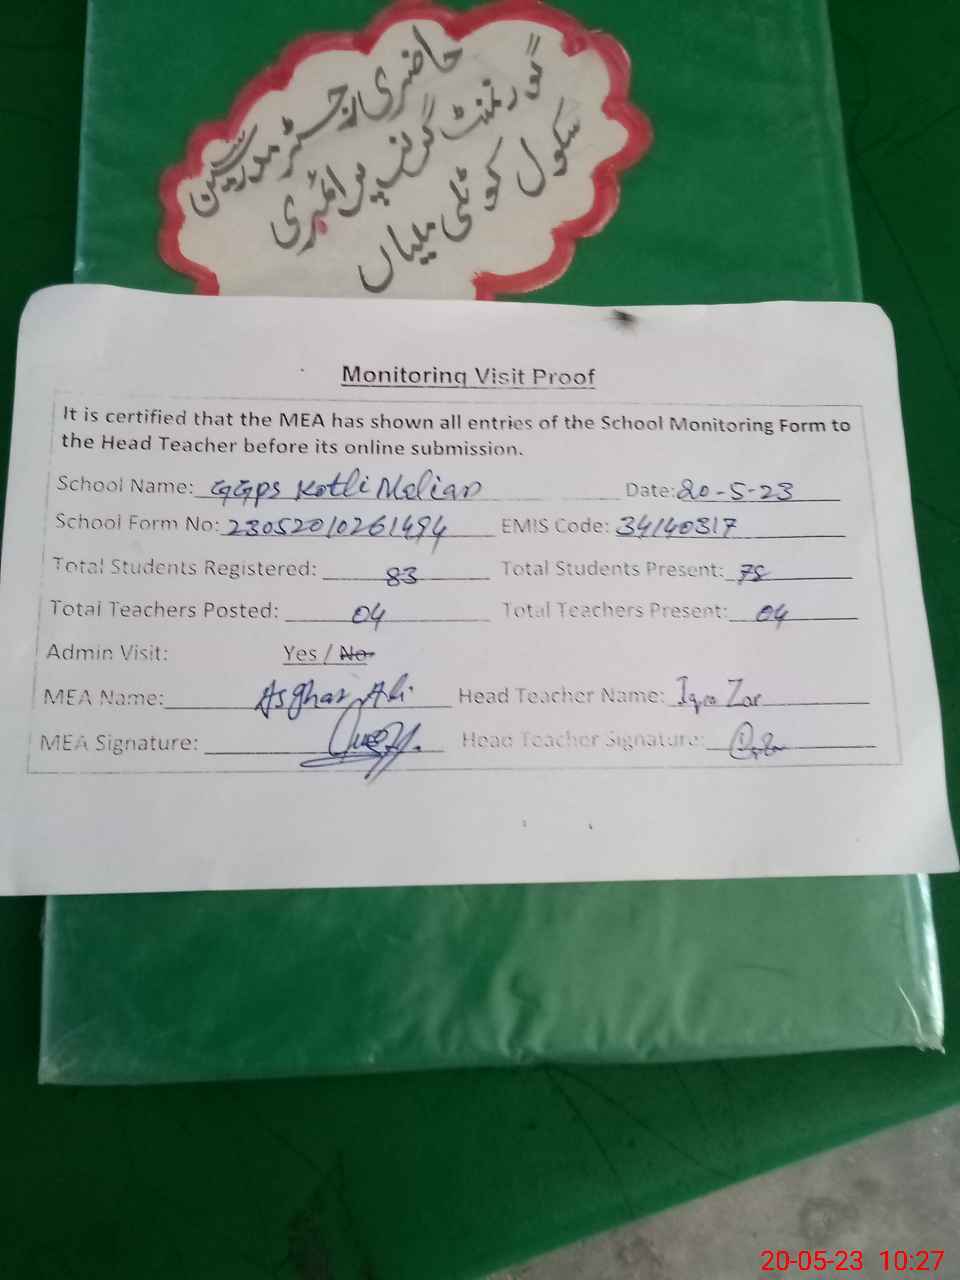 حاضری رجسٹر مدرسین
گورنمنٹ گرلز پرائمری
سکول کوٹلی ملیاں
Monitoring Visit Proof
It is certified that the MEA has shown all entries of the School Monitoring Form to
the Head Teacher before its online submission.
School Name: GGPS Kotli Malian Date: 20-5-23
School Form No: 23052010261494 EMIS Code: 34140317
Total Students Registered: 83 Total Students Present: 78
Total Teachers Posted: 04 Total Teachers Present: 04
Admin Visit: Yes / No
MEA Name: Asghar Ali Head Teacher Name: Iqra Zar
MEA Signature: Head Teacher Signature:
20-05-23 10:27